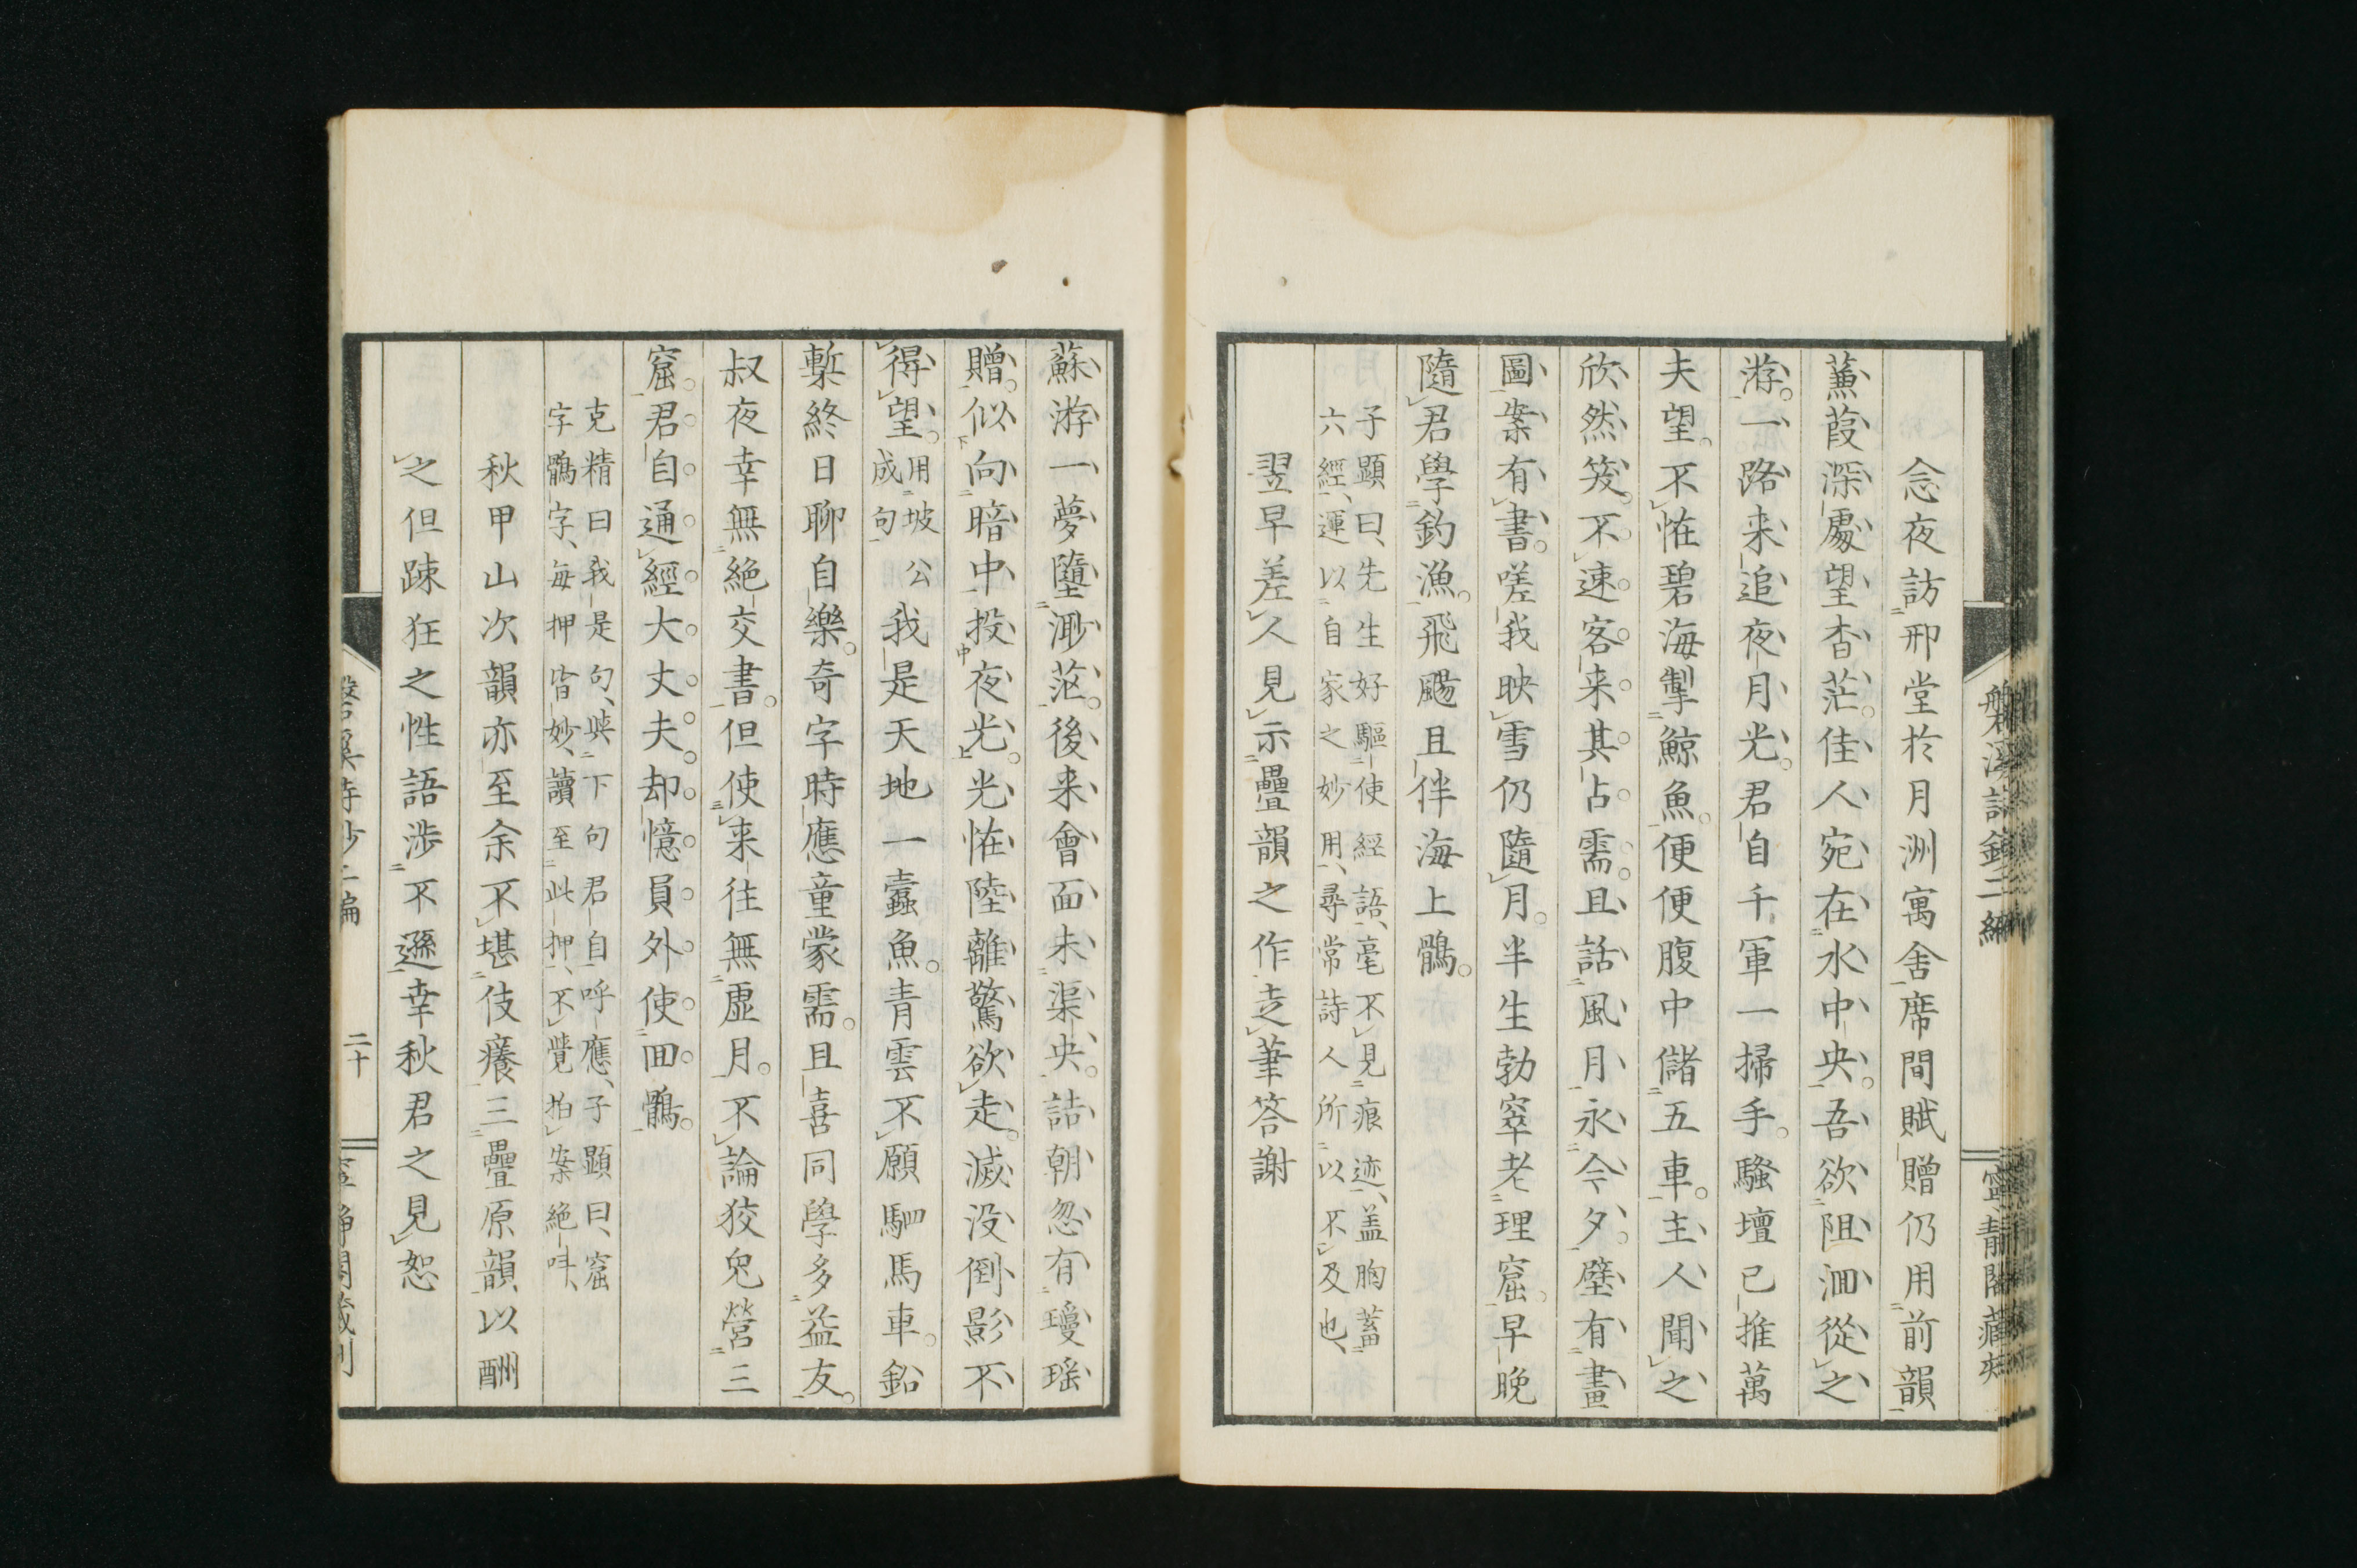 念夜訪邢堂於月洲寓舍席間賦贈仍用前韻
蒹葭深處望杳茫佳人宛在水中央吾欲阻洄從之
游一路来追夜月光君自千軍一掃手騷壇已推萬
夫望不恠碧海掣鯨魚便便腹中儲五車主人聞之
欣然笑不速客来其占需且話風月永今夕壁有畫
圖案有書嗟我映雪仍隨月半生勃窣老理窟早晚
隨君學釣漁飛颺且伴海上鶻
子顯曰、先生好驅使經語、毫不見痕迹、盖胸蓄
六經、運以自家之妙用、尋常詩人所以不及也、
翌早差人見示疊韻之作走筆答謝
蘇游一夢墮渺茫後来會面未渠央詰朝忽有瓊瑶
贈似向暗中投夜光光恠陸離驚欲走滅没倒影不
得望用坡公成句我是天地一蠹魚青雲不願駟馬車鉛
槧終日聊自樂奇字時應童蒙需且喜同學多益友
叔夜幸無絶交書但使来往無虚月不論狡兒營三
窟君自通經大丈夫却憶員外使回鶻
克精曰我是句、與下句君自呼應、子顯曰、窟
字鶻字、每押皆妙、讀至此押、不覺拍案絶叫、
秋甲山次韻亦至余不堪伎癢三疊原韻以酬
之但踈狂之性語渉不遜幸秋君之見恕
二十